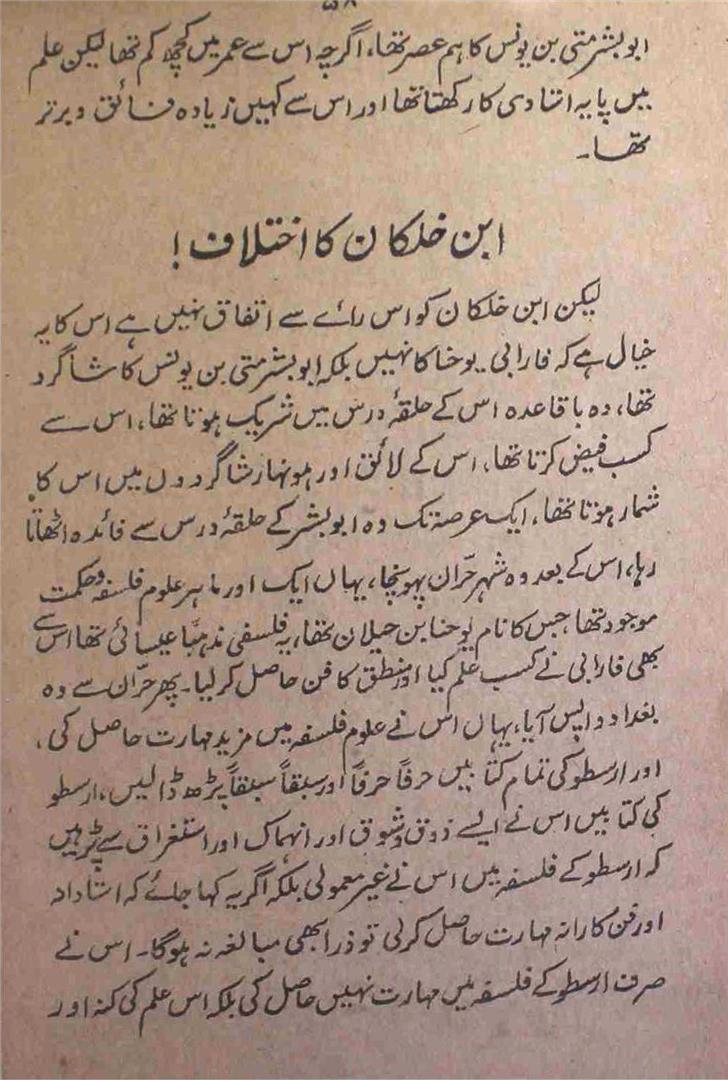 ۵۸
ابو بشر متی بن یونس کا ہم عصر تھا، اگرچہ اس سے عمر میں کچھ کم تھا لیکن علم
میں پایہ استادی کا رکھتا تھا اور اس سے کہیں زیادہ فائق و برتر
تھا۔
ابن خلکان کا اختلاف!
لیکن ابن خلکان کو اس رائے سے اتفاق نہیں ہے اس کا یہ
خیال ہے کہ فارابی یوحنا کا نہیں بلکہ ابو بشر متی بن یونس کا شاگرد
تھا، وہ باقاعدہ اس کے حلقۂ درس میں شریک ہوتا تھا، اس سے
کسب فیض کرتا تھا، اس کے لائق اور ہونہار شاگردوں میں اس کا
شمار ہوتا تھا، ایک عرصہ تک وہ ابو بشر کے حلقۂ درس سے فائدہ اٹھاتا
رہا، اس کے بعد وہ شہر حرّان پہونچا، یہاں ایک اور ماہر علوم فلسفہ و حکمت
موجود تھا جس کا نام یوحنا بن حیلان تھا، یہ فلسفی مذہباً عیسائی تھا اس سے
بھی فارابی نے کسب علم کیا اور منطق کا فن حاصل کر لیا۔ پھر حرّان سے وہ
بغداد واپس آیا، یہاں اس نے علوم فلسفہ میں مزید مہارت حاصل کی،
اور ارسطو کی تمام کتابیں حرفاً حرفاً اور سبقاً سبقاً پڑھ ڈالیں، ارسطو
کی کتابیں اس نے ایسے ذوق و شوق اور انہماک اور استغراق سے پڑہیں
کہ ارسطو کے فلسفہ میں اس نے غیر معمولی بلکہ اگر یہ کہا جائے کہ استادانہ
اور فن کارانہ مہارت حاصل کرلی تو ذرا بھی مبالغہ نہ ہوگا۔ اس نے
صرف ارسطو کے فلسفہ میں مہارت نہیں حاصل کی بلکہ اس علم کی کنہ اور